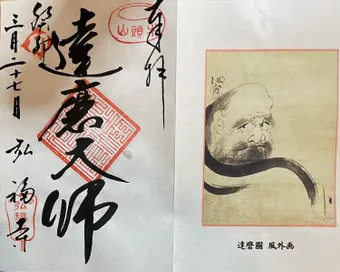 奉拝
達磨大師
癸卯
三月二十七日 弘福寺
達磨圖 風外画